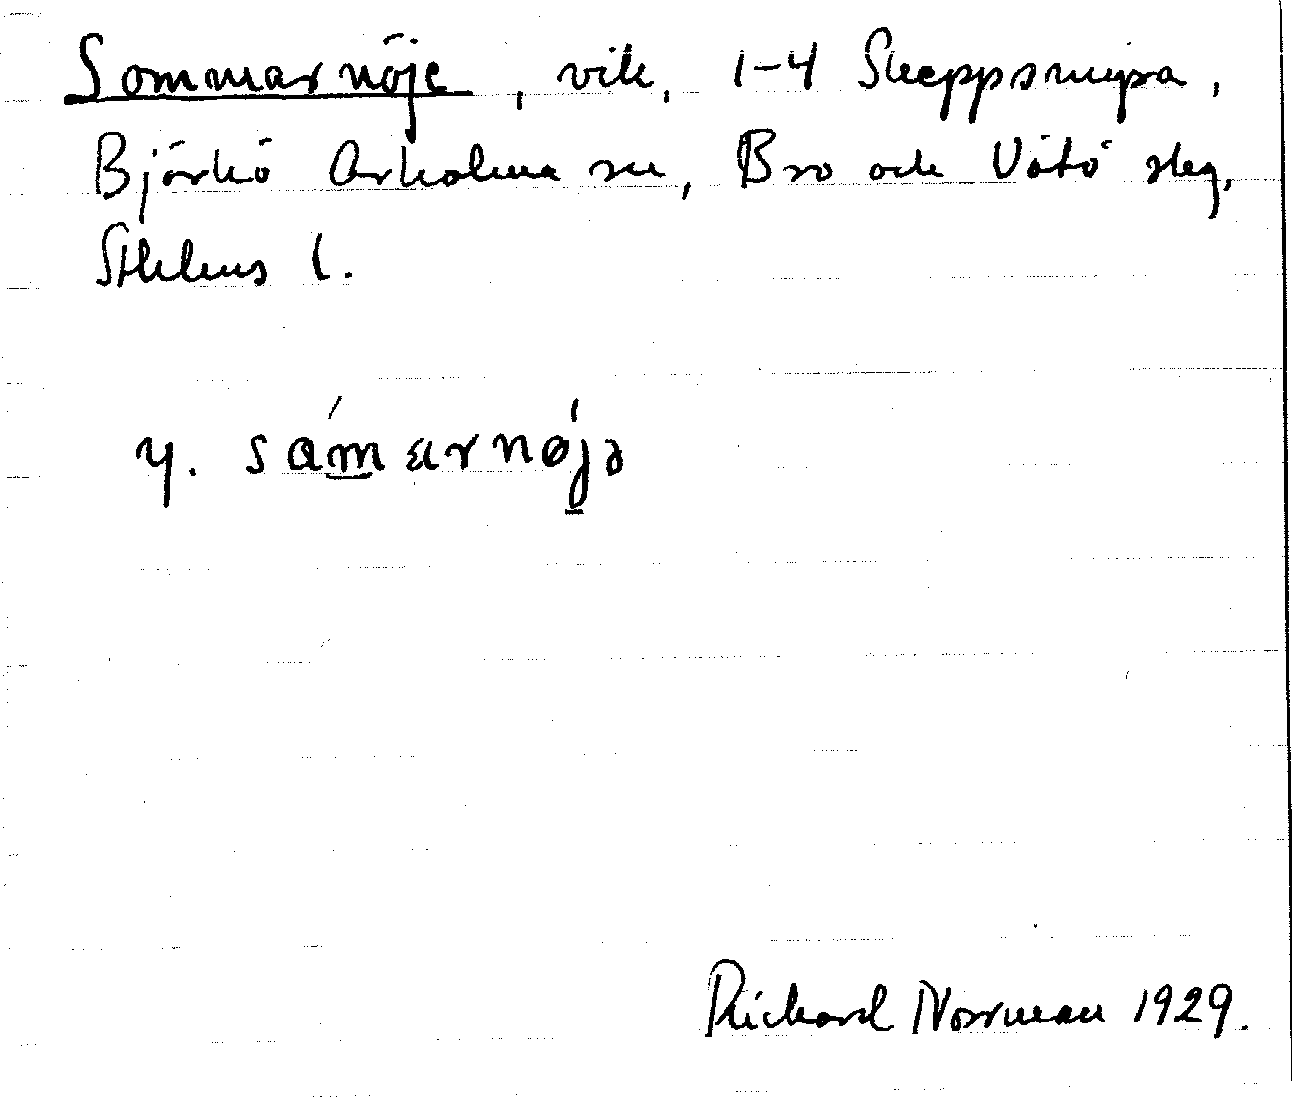 Sommarnöje, vik, 1-4 Skeppsmyra,
Björkö Arholma sn, Bro och Vätö slg,
Sthlms l.
y. sám̲arnǿj̲ə
Richard Norrman 1929.